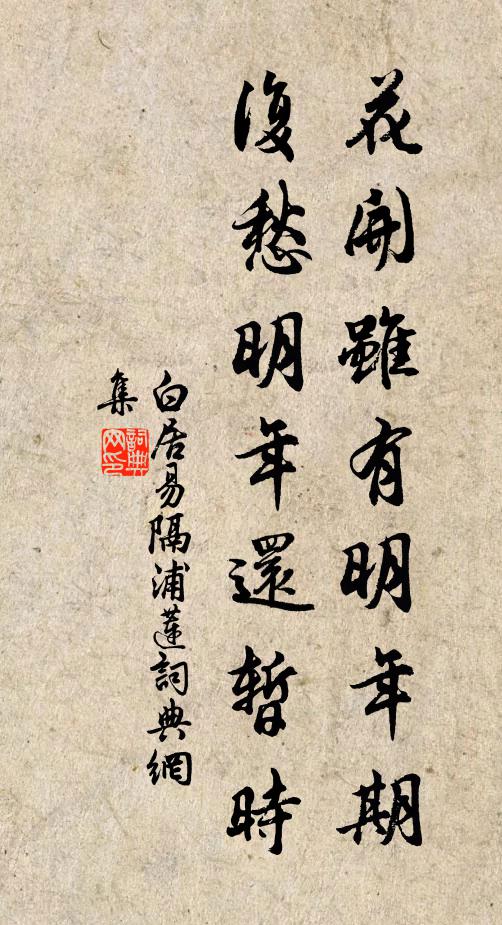 花開雖有明年期
復愁明年還暫時
白居易隔浦蓮詞典網
集
詞典網印